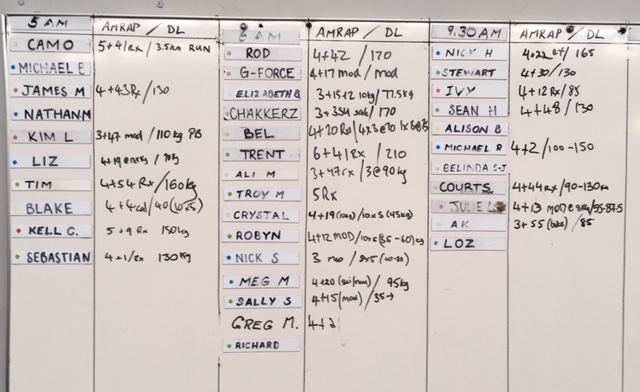 5 AM AMRAP / DL
CAMO 5+41/Rx / 3.5km RUN
MICHAEL B
JAMES M 4+43Rx/130
NATHAN M
KIM L 3+47 mod / 110kg PB
LIZ
TIM 4+54 Rx/160kg
BLAKE
KELL C. 5+9 Rx 150kg
SEBASTIAN 4+1/Rx 130kg
AMRAP / DL
ROD 4+42 / 170
G-FORCE 4+17 mod / mod
ELIZABETH B 3+15+12 10kg/77.5kg
CHAKKERZ / 170
BEL
TRENT 6+41Rx / 210
ALI M 3+47rx / 3@90kg
TROY M 5Rx
CRYSTAL 4+19 (10kg) / 10x5 (45kg)
ROBYN 4+12 MOD
NICK S
MEG M / 95kg
SALLY S 4+15 (mod) / 35
GREG M. 4+2
RICHARD
9.30 AM AMRAP / DL
NICK H / 165
STEWART 4+30/130
IVY 4+12 Rx/85
SEAN H 4+48 / 130
ALISON B
MICHAEL R 4+2 / 100-150
BELINDA S-J
COURTS 4+44Rx / 90-130kg
JULIE L 4+13 MOD
AK 3+55 (bike) / 85
LOZ